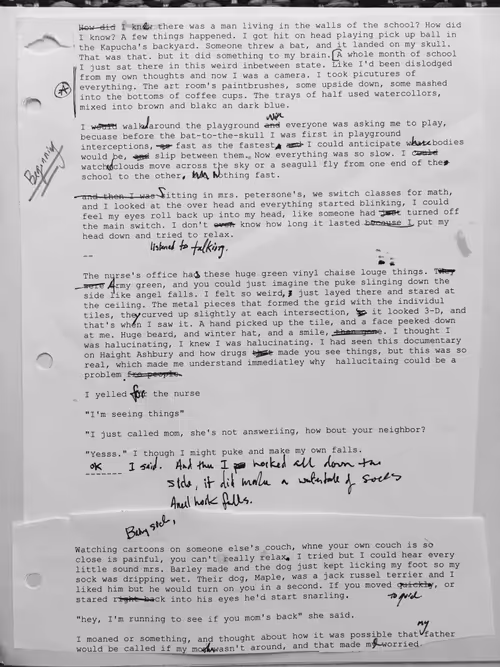 How did I knew there was a man living in the walls of the school? How did
I know? A few things happened. I got hit on head playing pick up ball in
the Kapucha's backyard. Someone threw a bat, and it landed on my skull.
That was that. but it did something to my brain. A whole month of school
I just sat there in this weird inbetween state. Like I'd been dislodged
from my own thoughts and now I was a camera. I took picutures of
everything. The art room's paintbrushes, some upside down, some mashed
into the bottoms of coffee cups. The trays of half used watercollors,
mixed into brown and blakc an dark blue.
A
Beginning
I would walk around the playground and when everyone was asking me to play,
becuase before the bat-to-the-skull I was first in playground
interceptions, fast as the fastest, I could anticipate where bodies
would be, and slip between them. Now everything was so slow. I could
watch clouds move across the sky or a seagull fly from one end of the
school to the other, nothing fast.
and then I was Sitting in mrs. petersone's, we switch classes for math,
and I looked at the over head and everything started blinking, I could
feel my eyes roll back up into my head, like someone had just turned off
the main switch. I don't even know how long it lasted because I put my
head down and tried to relax.
listened to talking.
--
The nurse's office had these huge green vinyl chaise louge things. They
were Army green, and you could just imagine the puke slinging down the
side like angel falls. I felt so weird, I just layed there and stared at
the ceiling. The metal pieces that formed the grid with the individul
tiles, they curved up slightly at each intersection, so it looked 3-D, and
that's when I saw it. A hand picked up the tile, and a face peeked down
at me. Huge beard, and winter hat, and a smile, I thought I
was halucinating, I knew I was halucinating. I had seen this documentary
on Haight Ashbury and how drugs that made you see things, but this was so
real, which made me understand immediatley why hallucitaing could be a
problem for people.
I yelled for the nurse
"I'm seeing things"
"I just called mom, she's not answeriing, how bout your neighbor?
"Yesss." I though I might puke and make my own falls.
-------
OK I said. And then I worked all down the
side, it did make a waterfall of socks
Anail work falls.
Barley sock,
Watching cartoons on someone else's couch, whne your own couch is so
close is painful, you can't really relax. I tried but I could hear every
little sound mrs. Barley made and the dog just kept licking my foot so my
sock was dripping wet. Their dog, Maple, was a jack russel terrier and I
liked him but he would turn on you in a second. If you moved quickly, or
stared right back into his eyes he'd start snarling.
to quick
"hey, I'm running to see if you mom's back" she said.
I moaned or something, and thought about how it was possible that my father
would be called if my mom wasn't around, and that made me worried.